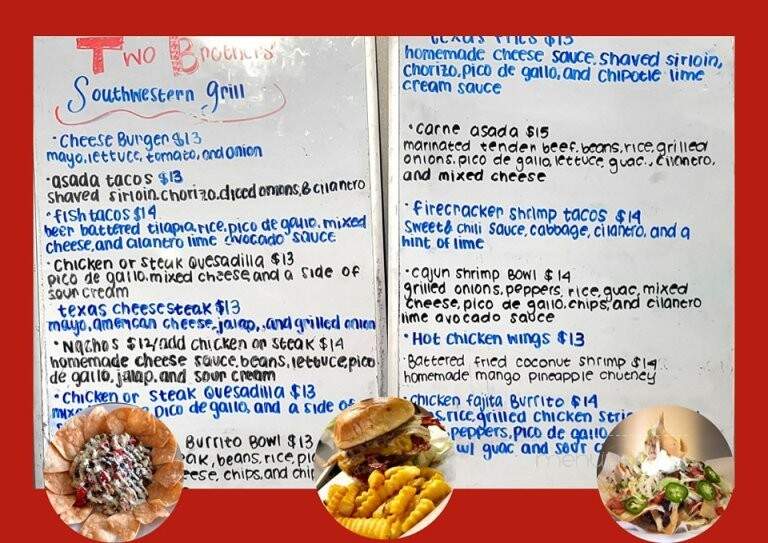 Two Brothers'
Southwestern Grill
• Cheese Burger $13
mayo, lettuce, tomato, and onion
• asada tacos $13
shaved sirloin, chorizo, diced onions, & cilantro
• fish tacos $14
beer battered tilapia, rice, pico de gallo, mixed
cheese, and cilantro lime avocado sauce
• Chicken or steak Quesadilla $13
pico de gallo, mixed cheese, and a side of
sour cream
texas cheesesteak $13
mayo, american cheese, jalap., and grilled onion
• Nachos $12/add chicken or steak $14
homemade cheese sauce, beans, lettuce, pico
de gallo, jalap. and sour cream
• Chicken or steak Quesadilla $13
pico de gallo, and a side of
Burrito Bowl $13
beans, rice,
chips, and
texas fries $13
homemade cheese sauce, shaved sirloin,
chorizo, pico de gallo, and chipotle lime
cream sauce
• carne asada $15
marinated tender beef, beans, rice, grilled
onions, pico de gallo, lettuce, guac., cilantro,
and mixed cheese
• firecracker shrimp tacos $14
sweet & chili sauce, cabbage, cilantro, and a
hint of lime
• cajun shrimp bowl $14
grilled onions, peppers, rice, guac, mixed
cheese, pico de gallo, chips, and cilantro
lime avocado sauce
• Hot chicken wings $13
• Battered fried coconut shrimp $14
homemade mango pineapple chutney
chicken fajita Burrito $14
rice, grilled chicken
peppers, pico de
guac and sour